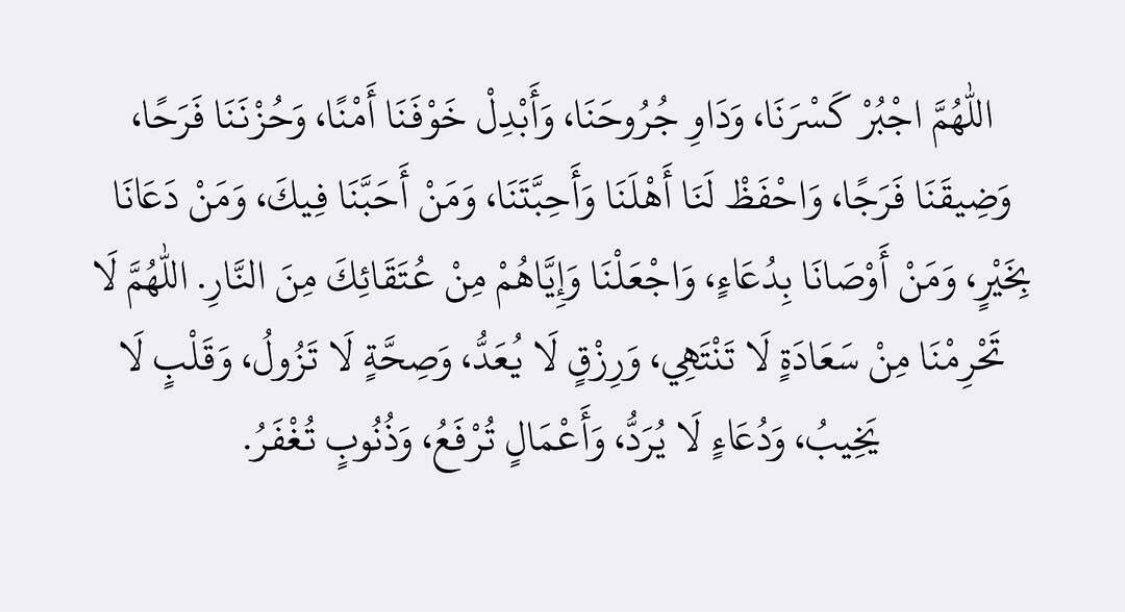 اللَّهُمَّ اجْبُرْ كَسْرَنَا، وَدَاوِ جُرُوحَنَا، وَأَبْدِلْ خَوْفَنَا أَمْنًا، وَحُزْنَنَا فَرَحًا،
وَضِيقَنَا فَرَجًا، وَاحْفَظْ لَنَا أَهْلَنَا وَأَحِبَّتَنَا، وَمَنْ أَحَبَّنَا فِيكَ، وَمَنْ دَعَانَا
بِخَيْرٍ، وَمَنْ أَوْصَانَا بِدُعَاءٍ، وَاجْعَلْنَا وَإِيَّاهُمْ مِنْ عُتَقَائِكَ مِنَ النَّارِ. اللَّهُمَّ لَا
تَحْرِمْنَا مِنْ سَعَادَةٍ لَا تَنْتَهِي، وَرِزْقٍ لَا يُعَدُّ، وَصِحَّةٍ لَا تَزُولُ، وَقَلْبٍ لَا
يَخِيبُ، وَدُعَاءٍ لَا يُرَدُّ، وَأَعْمَالٍ تُرْفَعُ، وَذُنُوبٍ تُغْفَرُ.